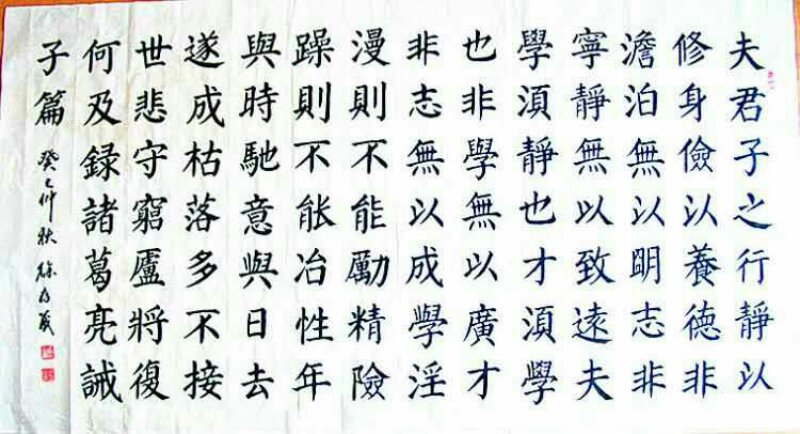 夫君子之行靜以
修身儉以養德非
澹泊無以明志非
寧靜無以致遠夫
學湏靜也才湏學
也非學無以廣才
非志無以成學淫
漫則不能勵精險
躁則不能冶性年
與時馳意與日去
遂成枯落多不接
世悲守窮廬將復
何及録諸葛亮誡
子篇 癸巳仲秋